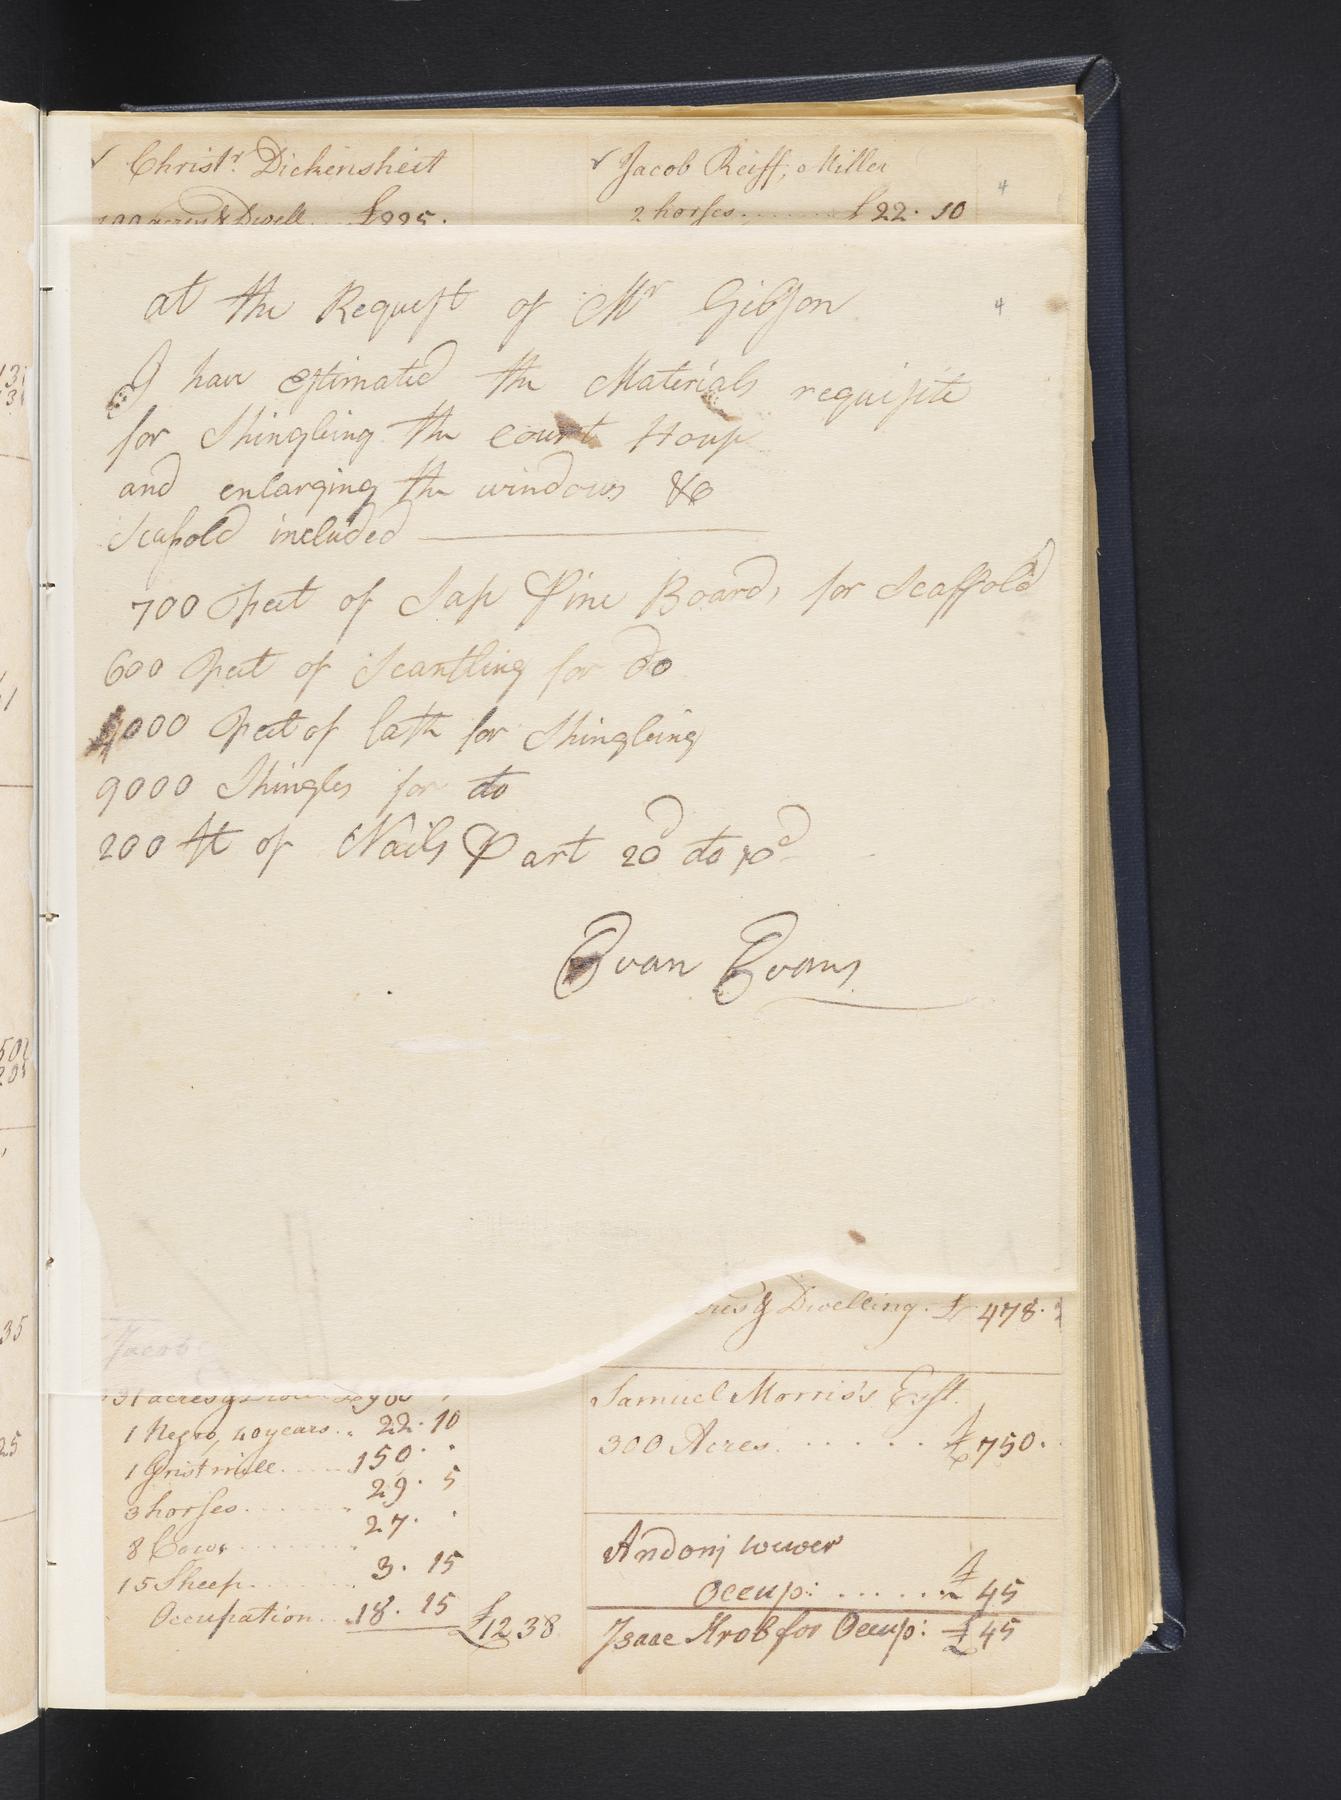 Christr. Dickensheit
100 acres & Dwell. £225.
Jacob Reiff, Miller
2 horses........£22. 10
4
at the Request of Mr Gibson
4
I have Estimated the Materials requisite
for Shingleing the court House
and enlarging the windows &c
Scafold included
700 Feet of Sap Pine Boards for Scaffold
600 Feet of Scantling for do
4000 Feet of lath for Shingleing
9000 Shingles for do
200 lt of Nails Part 20d to 10d
Evan Evans
& Dwelling. £ 478.
Jacob
31 acres &
1 Negro, 40 years.. 22. 10
1 Gristmill......150. .
3 horses........ 29. 5
8 Cows........ 27. .
15 Sheep........ 3. 15
Occupation...18. 15 £1238
Samuel Morris's Est.
300 Acres...... £750.
Andoni wuwer
Occup: ......£ 45
Isaac Krob for Occup: £45
131
501
201
35
25